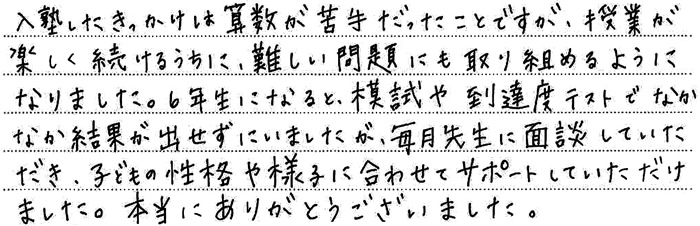 入塾したきっかけは算数が苦手だったことですが、授業が
楽しく続けるうちに、難しい問題にも取り組めるように
なりました。6年生になると、模試や到達度テストでなか
なか結果が出せずにいましたが、毎月先生に面談していた
だき、子どもの性格や様子に合わせてサポートしていただけ
ました。本当にありがとうございました。